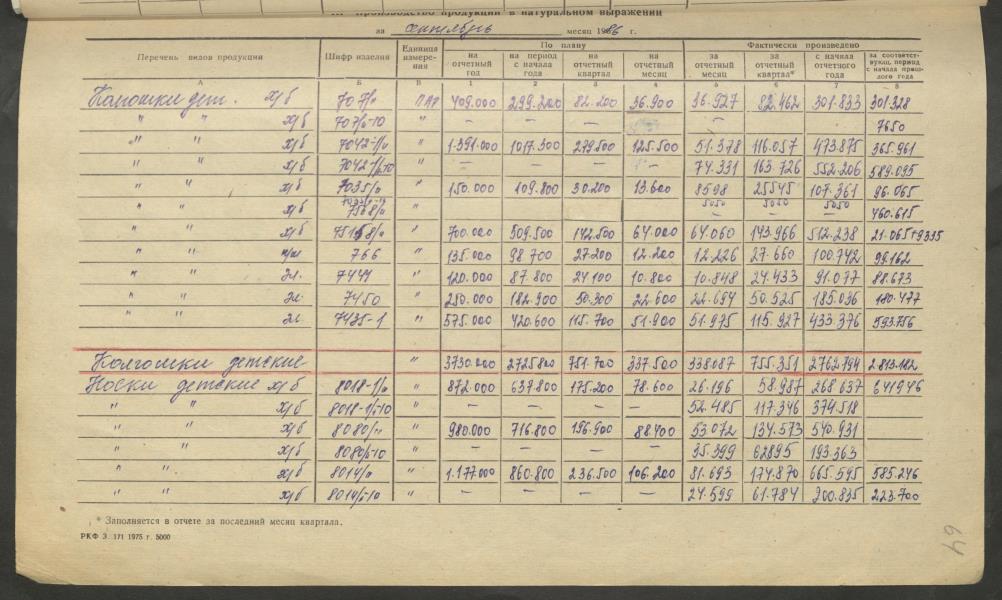 производство продукции в натуральном выражении
за сентябрь месяц 1986 г.
Перечень видов продукции Шифр изделия Единица измерения По плану Фактически произведено
на отчетный год на период с начала года на отчетный квартал на отчетный месяц за отчетный месяц за отчетный квартал* с начала отчетного года за соответствующ. период с начала прошлого года
А Б В 1 2 3 4 5 6 7 8
Колготки дет. х/б 707/о ПАР 409.000 299.200 82.200 36.900 36.927 82.462 301.833 301.328
" " х/б " — — — — 7650
" " х/б " 1.391.000 1017.300 279.500 125.500 51.378 116.057 473.875 365.961
" " х/б " — — — 74.331 163.726 552.206 589.095
" " х/б 7035/о " 150.000 109.800 30.200 13.600 8598 25545 107.361 96.065
" " х/б " 5050 5050 5050 460.615
" " х/б " 700.000 509.500 142.500 64.000 64.060 143.966 512.238 21.065+9335
" " п/ш 766 " 135.000 98 700 27.200 12.200 12.226 27.660 100.742 99162
" " эл. 7444 " 120.000 87.800 24100 10.800 10.848 24.433 91.077 88.673
" " эл. 7450 " 250.000 182.900 50.300 22.600 22.694 50.525 185.096 180.477
" " эл. 7435-1 " 575.000 420.600 115.700 51.900 51.975 115.927 433.376 593.756
Колготки детские " 3730.000 2725800 751.700 337.500 338087 755.351 2762794 2.813.182
Носки детские х/б 8018-1/о " 872.000 637.800 175.200 78.600 26.196 58.987 268.637 641946
" " х/б 8018-1/о-10 " — — — 52.485 117.346 374.518
" " х/б 8080/о " 980.000 716.800 196.900 88400 53072 134.573 540.931
" " х/б 8080/о-10 " — — — 35.399 62895 193.363
" " х/б 8014/о " 1.177000 860.800 236.500 106.200 81.693 174.870 665.595 585.246
" " х/б 8014/о-10 " — — — — 24.599 61.784 200.835 223.700
* Заполняется в отчете за последний месяц квартала.
РКФ З. 171 1975 г. 5000
64